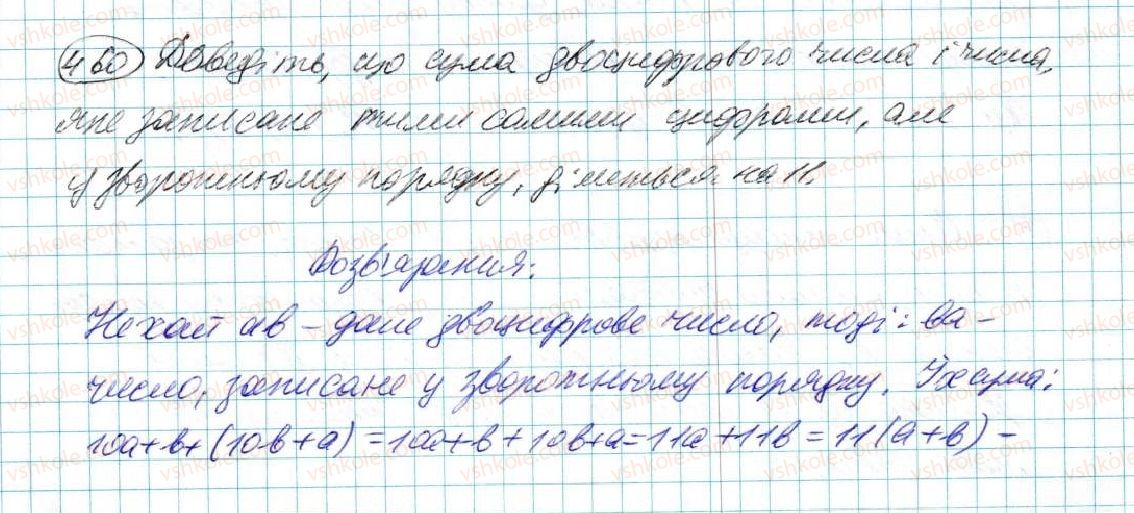 460 Доведіть, що сума двоцифрового числа і числа,
яке записане тими самими цифрами, але
у зворотньому порядку, ділиться на 11.
Розв'язання:
Нехай ав – дане двоцифрове число, тоді: ва –
число, записане у зворотньому порядку. Їх сума:
10а+в+(10в+а)=10а+в+10в+а=11а+11в=11(а+в) –